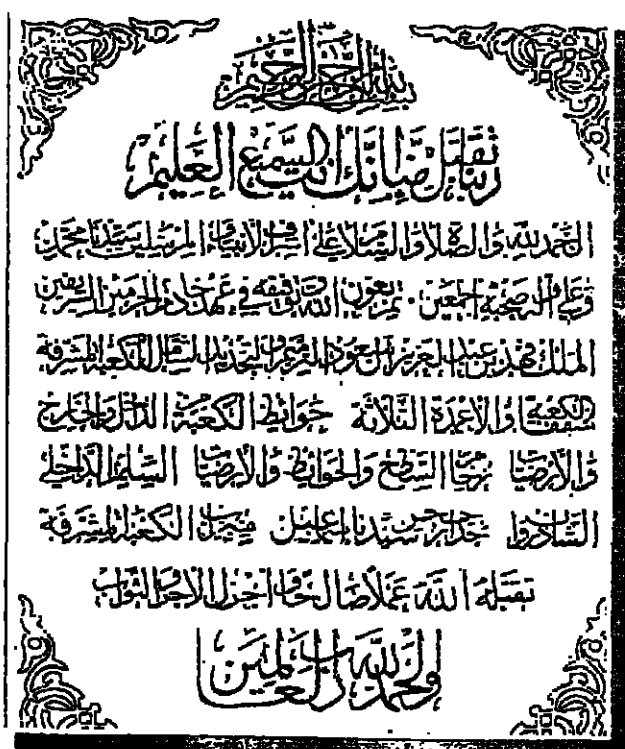 بسم الله الرحمن الرحيم
ربنا تقبل منا إنك أنت السميع العليم
الحمد لله والصلاة والسلام على أشرف الأنبياء والمرسلين سيدنا محمد
وعلى آله وصحبه أجمعين. تم بعون الله وتوفيقه في عهد خادم الحرمين الشريفين
الملك فهد بن عبد العزيز آل سعود الترميم والتجديد الشامل للكعبة المشرفة
سقف الكعبة والأعمدة الثلاثة حوائط الكعبة الداخل والخارج
والأرضيات رخام السطح والحوائط والأرضيات السلم الداخلي
الشاذروان جدار حجر سيدنا إسماعيل ميزاب الكعبة المشرفة
تقبله الله عملا صالحا وأجزل الأجر والثواب
والحمد لله رب العالمين